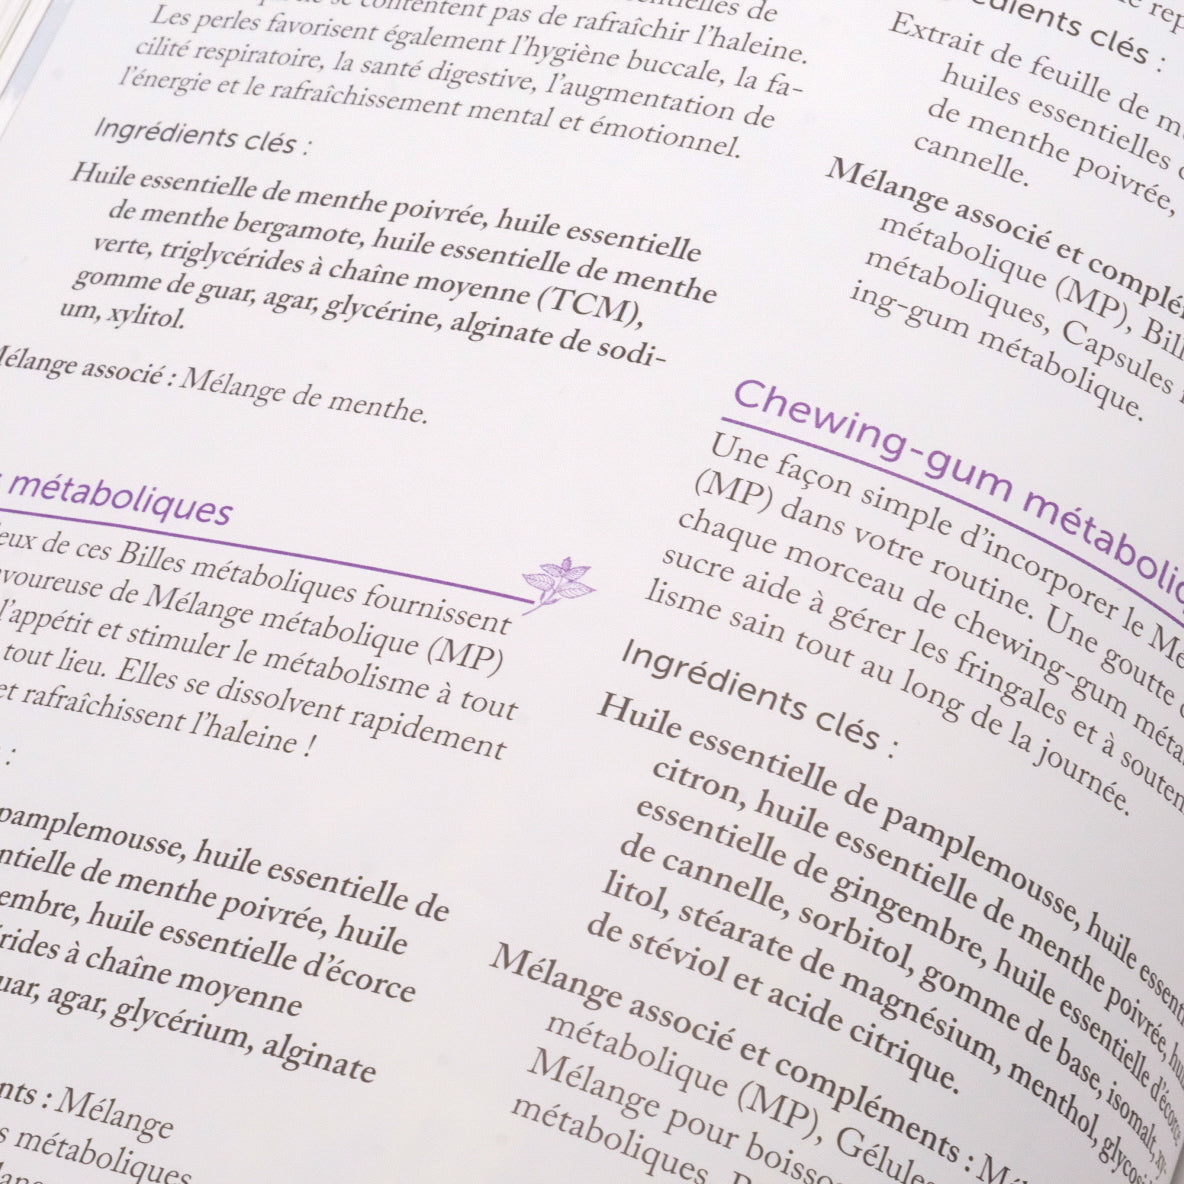 se contentent pas de rafraîchir l'haleine.
Les perles favorisent également l'hygiène buccale, la fa-
cilité respiratoire, la santé digestive, l'augmentation de
l'énergie et le rafraîchissement mental et émotionnel.
Ingrédients clés :
Huile essentielle de menthe poivrée, huile essentielle
de menthe bergamote, huile essentielle de menthe
verte, triglycérides à chaîne moyenne (TCM),
gomme de guar, agar, glycérine, alginate de sodi-
um, xylitol.
Mélange associé : Mélange de menthe.
métaboliques
de ces Billes métaboliques fournissent
de Mélange métabolique (MP)
l'appétit et stimuler le métabolisme à tout
tout lieu. Elles se dissolvent rapidement
et rafraîchissent l'haleine !
:
pamplemousse, huile essentielle de
de menthe poivrée, huile
huile essentielle d'écorce
à chaîne moyenne
agar, glycérium, alginate
: Mélange
métaboliques
clés :
Extrait de feuille de
huiles essentielles
de menthe poivrée,
cannelle.
Mélange associé et
métabolique (MP),
métaboliques, Capsules
ing-gum métabolique.
Chewing-gum
Une façon simple d'incorporer le
(MP) dans votre routine. Une goutte
chaque morceau de chewing-gum
sucre aide à gérer les fringales et à
lisme sain tout au long de la journée.
Ingrédients clés :
Huile essentielle de pamplemousse, huile
citron, huile essentielle de menthe poivrée,
essentielle de gingembre, huile essentielle d'écorce
de cannelle, sorbitol, gomme de base, isomalt, xy-
litol, stéarate de magnésium, menthol,
de stéviol et acide citrique.
Mélange associé et compléments :
métabolique (MP), Gélules
Mélange pour
métaboliques,